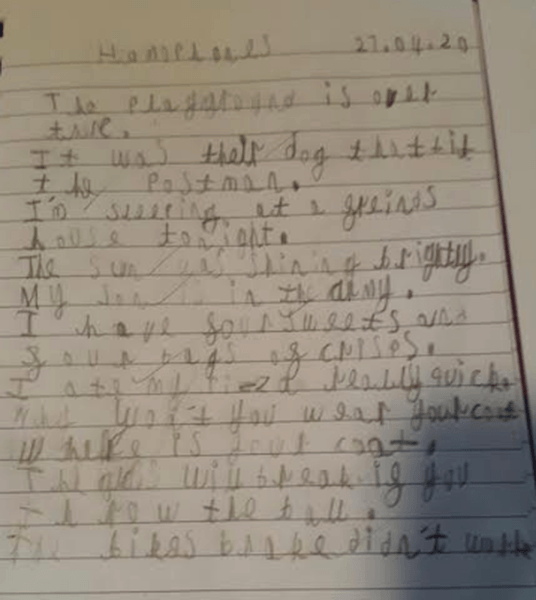 Homophones 27.04.20
The playground is over
there.
It was their dog that bit
the postman.
I'm sleeping at a greinds
house tonight.
The sun was shining brightly.
My son is in the army.
I have four sweets and
four bags of crisps.
I ate my really quick.
Why won't you wear your coat
Where is your coat.
The glass will break if you
throw the ball.
The bikes brake didn't work